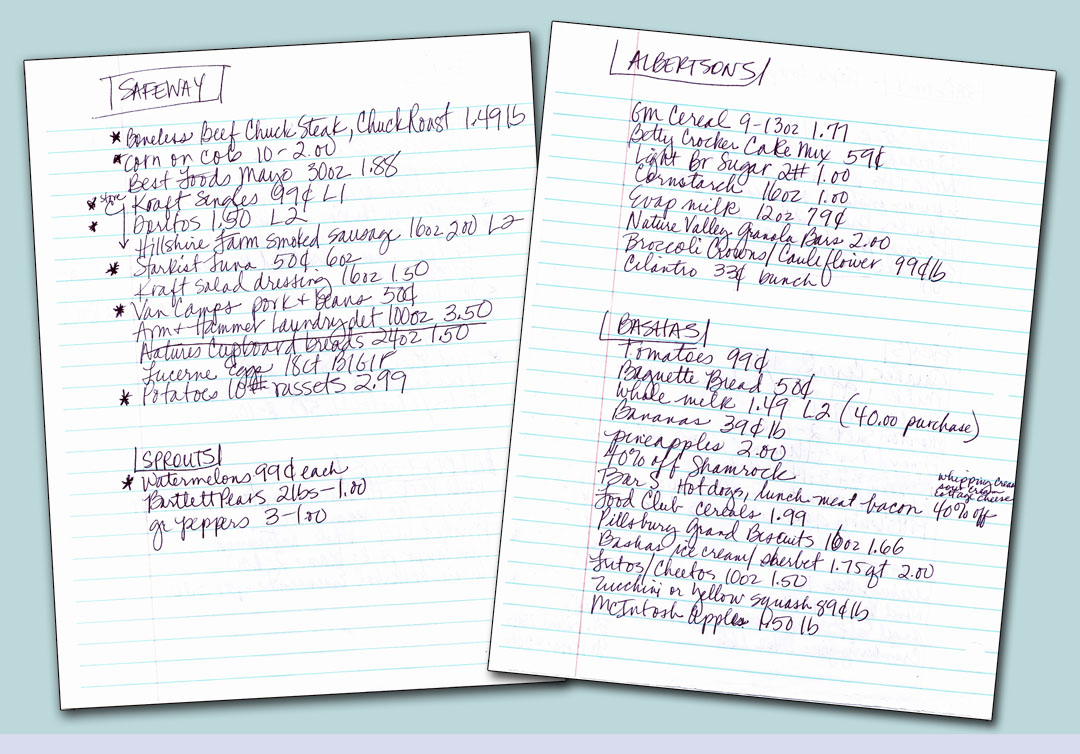 SAFEWAY
* Boneless Beef Chuck Steak, Chuck Roast 1.49 lb
* Corn on Cob 10-2.00
Best Foods Mayo 30oz 1.88
* Kraft Singles 99¢ L1
* Doritos 1.50 L2
Hillshire Farm Smoked Sausage 16oz 2.00 L2
* Starkist Tuna 50¢ 6oz
Kraft Salad dressing 16oz 1.50
* Van Camps pork + beans 50¢
Arm + Hammer Laundry det 100oz 3.50
Natures Cupboard breads 24oz 1.50
Lucerne eggs 18ct B1G1F
* Potatoes 10# russets 2.99
SPROUTS
* Watermelons 99¢ each
Bartlett Pears 2lbs-1.00
gr peppers 3-1.00
ALBERTSONS
GM Cereal 9-13oz 1.77
Betty Crocker Cake Mix 59¢
Light Br Sugar 2# 1.00
Cornstarch 16oz 1.00
Evap milk 12oz 79¢
Nature Valley Granola Bars 2.00
Broccoli Crowns/Cauliflower 99¢ lb
Cilantro 33¢ bunch
BASHAS
Tomatoes 99¢
Baguette Bread 50¢
Whole milk 1.49 L2 (40.00 purchase)
Bananas 39¢ lb
pineapples 2.00
40% off Shamrock whipping cream sour cream cottage cheese
Bar S Hotdogs, lunch meat bacon 40% off
Food Club cereals 1.99
Pillsbury Grand Biscuits 16oz 1.66
Bashas ice cream/sherbet 1.75qt 2.00
Fritos/Cheetos 10oz 1.50
Zucchini or yellow squash 89¢ lb
McIntosh Apples 1.50 lb